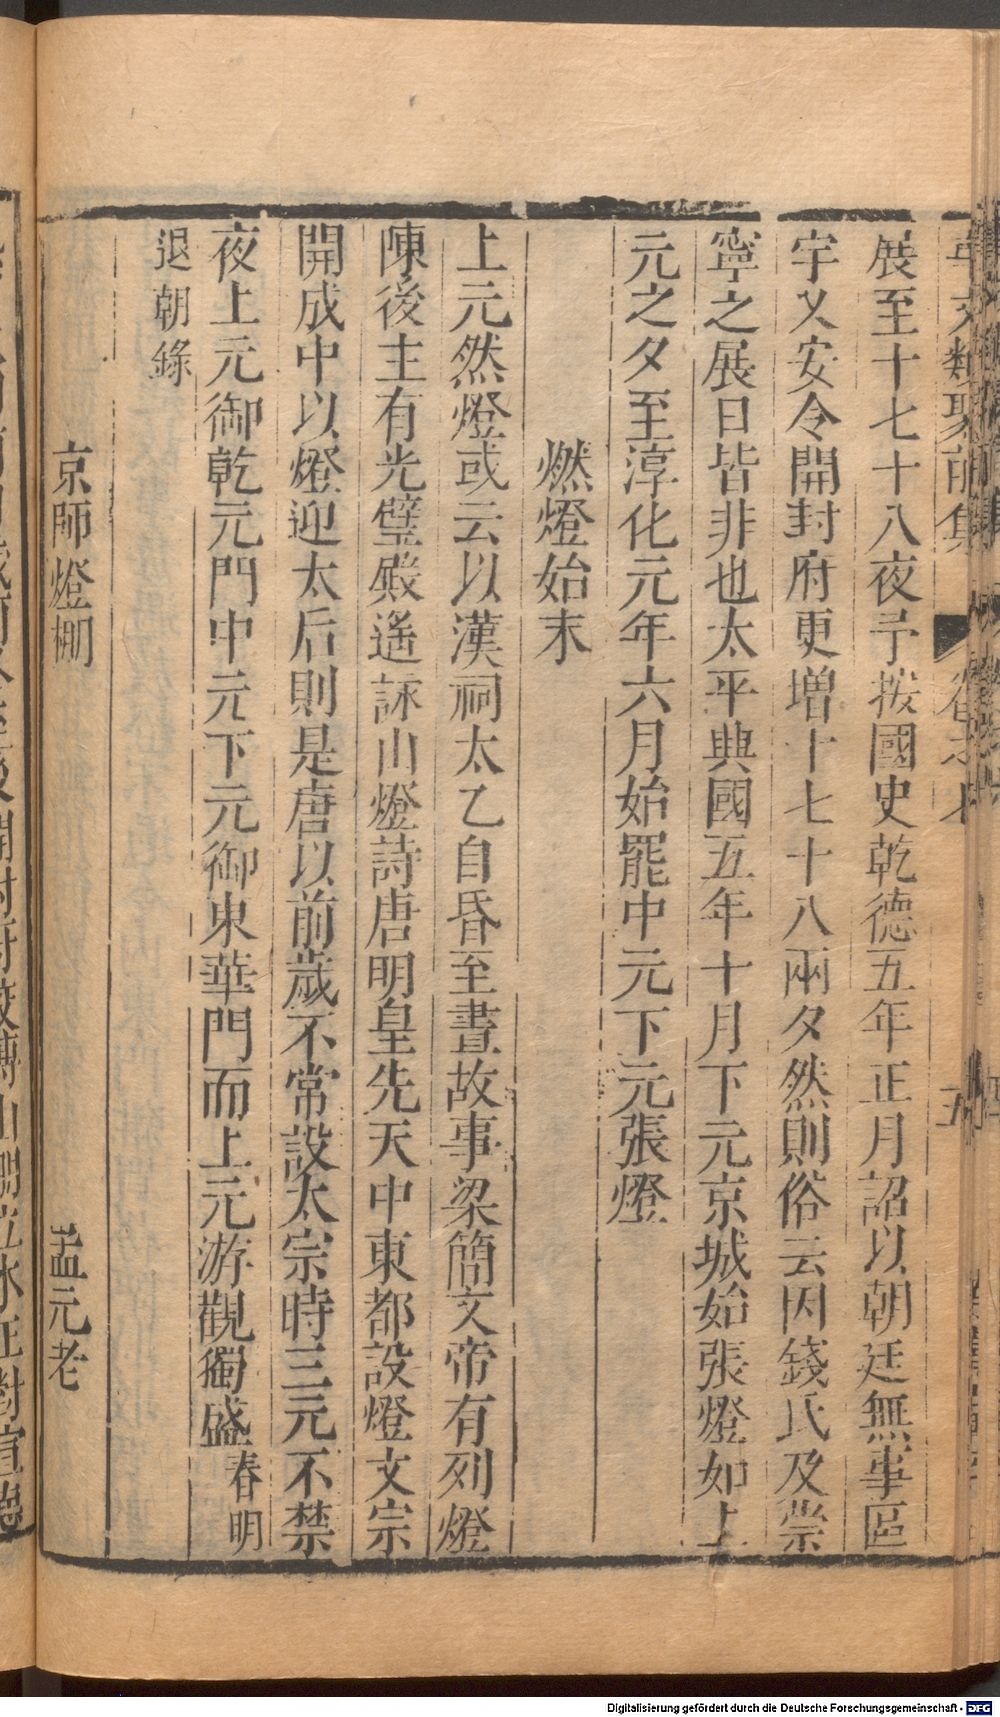 事文類聚前集 卷之七 五
展至十七十八夜予按國史乾德五年正月詔以朝廷無事區
宇乂安令開封府更増十七十八兩夕然則俗云因錢氏及崇
寧之展日皆非也太平興國五年十月下元京城始張燈如上
元之夕至淳化元年六月始罷中元下元張燈
燃燈始末
上元然燈或云以漢祠太乙自昏至晝故事梁簡文帝有列燈
陳後主有光璧殿遙詠山燈詩唐明皇先天中東都設燈文宗
開成中以燈迎太后則是唐以前歲不常設太宗時三元不禁
夜上元御乾元門中元下元御東華門而上元游觀獨盛春明
退朝錄
京師燈棚 孟元老
開封府絞縛山棚立木正對宣德
Digitalisierung gefördert durch die Deutsche Forschungsgemeinschaft - DFG